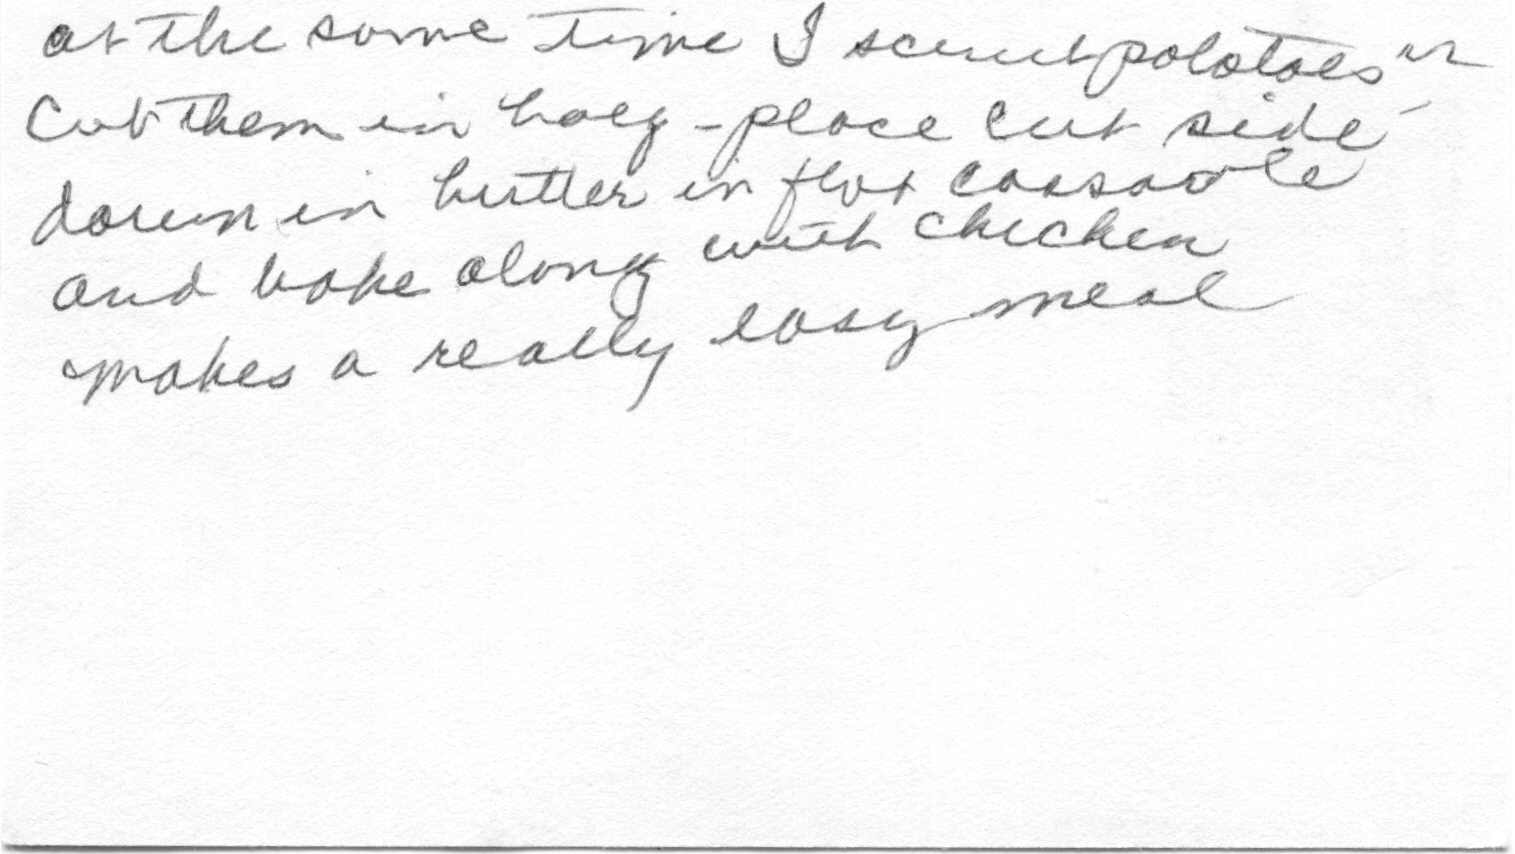 at the same time I scrub potatoes
Cut them in half - place cut side
down in butter in flat cassarole
and bake along with chicken
makes a really easy meal